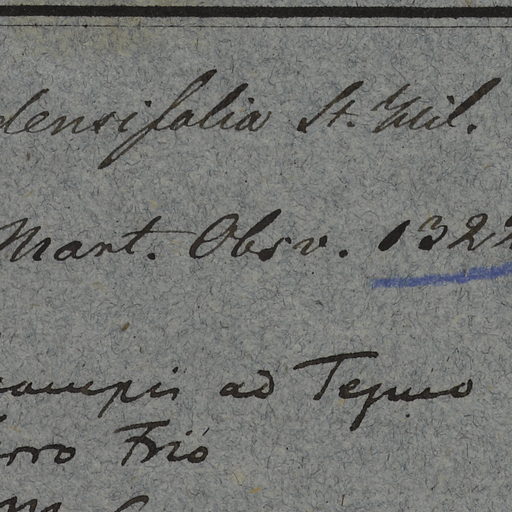 densifolia St. Hil.
Mart. Obsv. 132
campis ad Tejuco
rro Frio